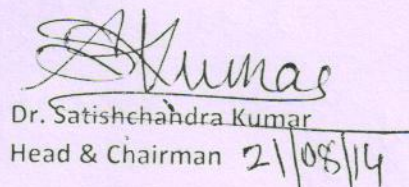 SKumar
Dr. Satishchandra Kumar
Head & Chairman 21/08/14